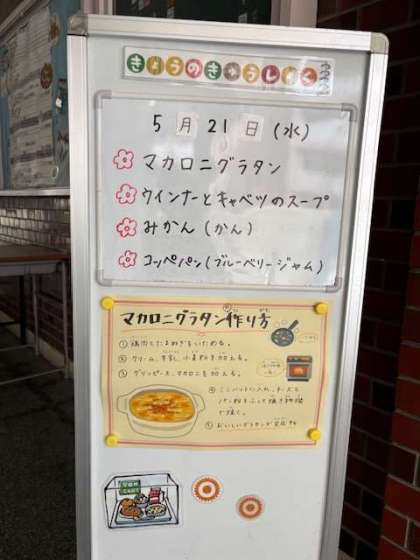 きょうのきゅうしょく
5月21日(水)
マカロニグラタン
ウインナーとキャベツのスープ
みかん(かん)
コッペパン(ブルーベリージャム)
マカロニグラタンの作り方
① 鶏肉とたまねぎをいためる。
② クリーム、牛乳、小麦粉を加える。
③ グリンピース、マカロニを加える。
④ ②をバットに入れ、チーズと
パン粉をふって焼き物機
で焼く。
⑤ おいしいグラタンの完成